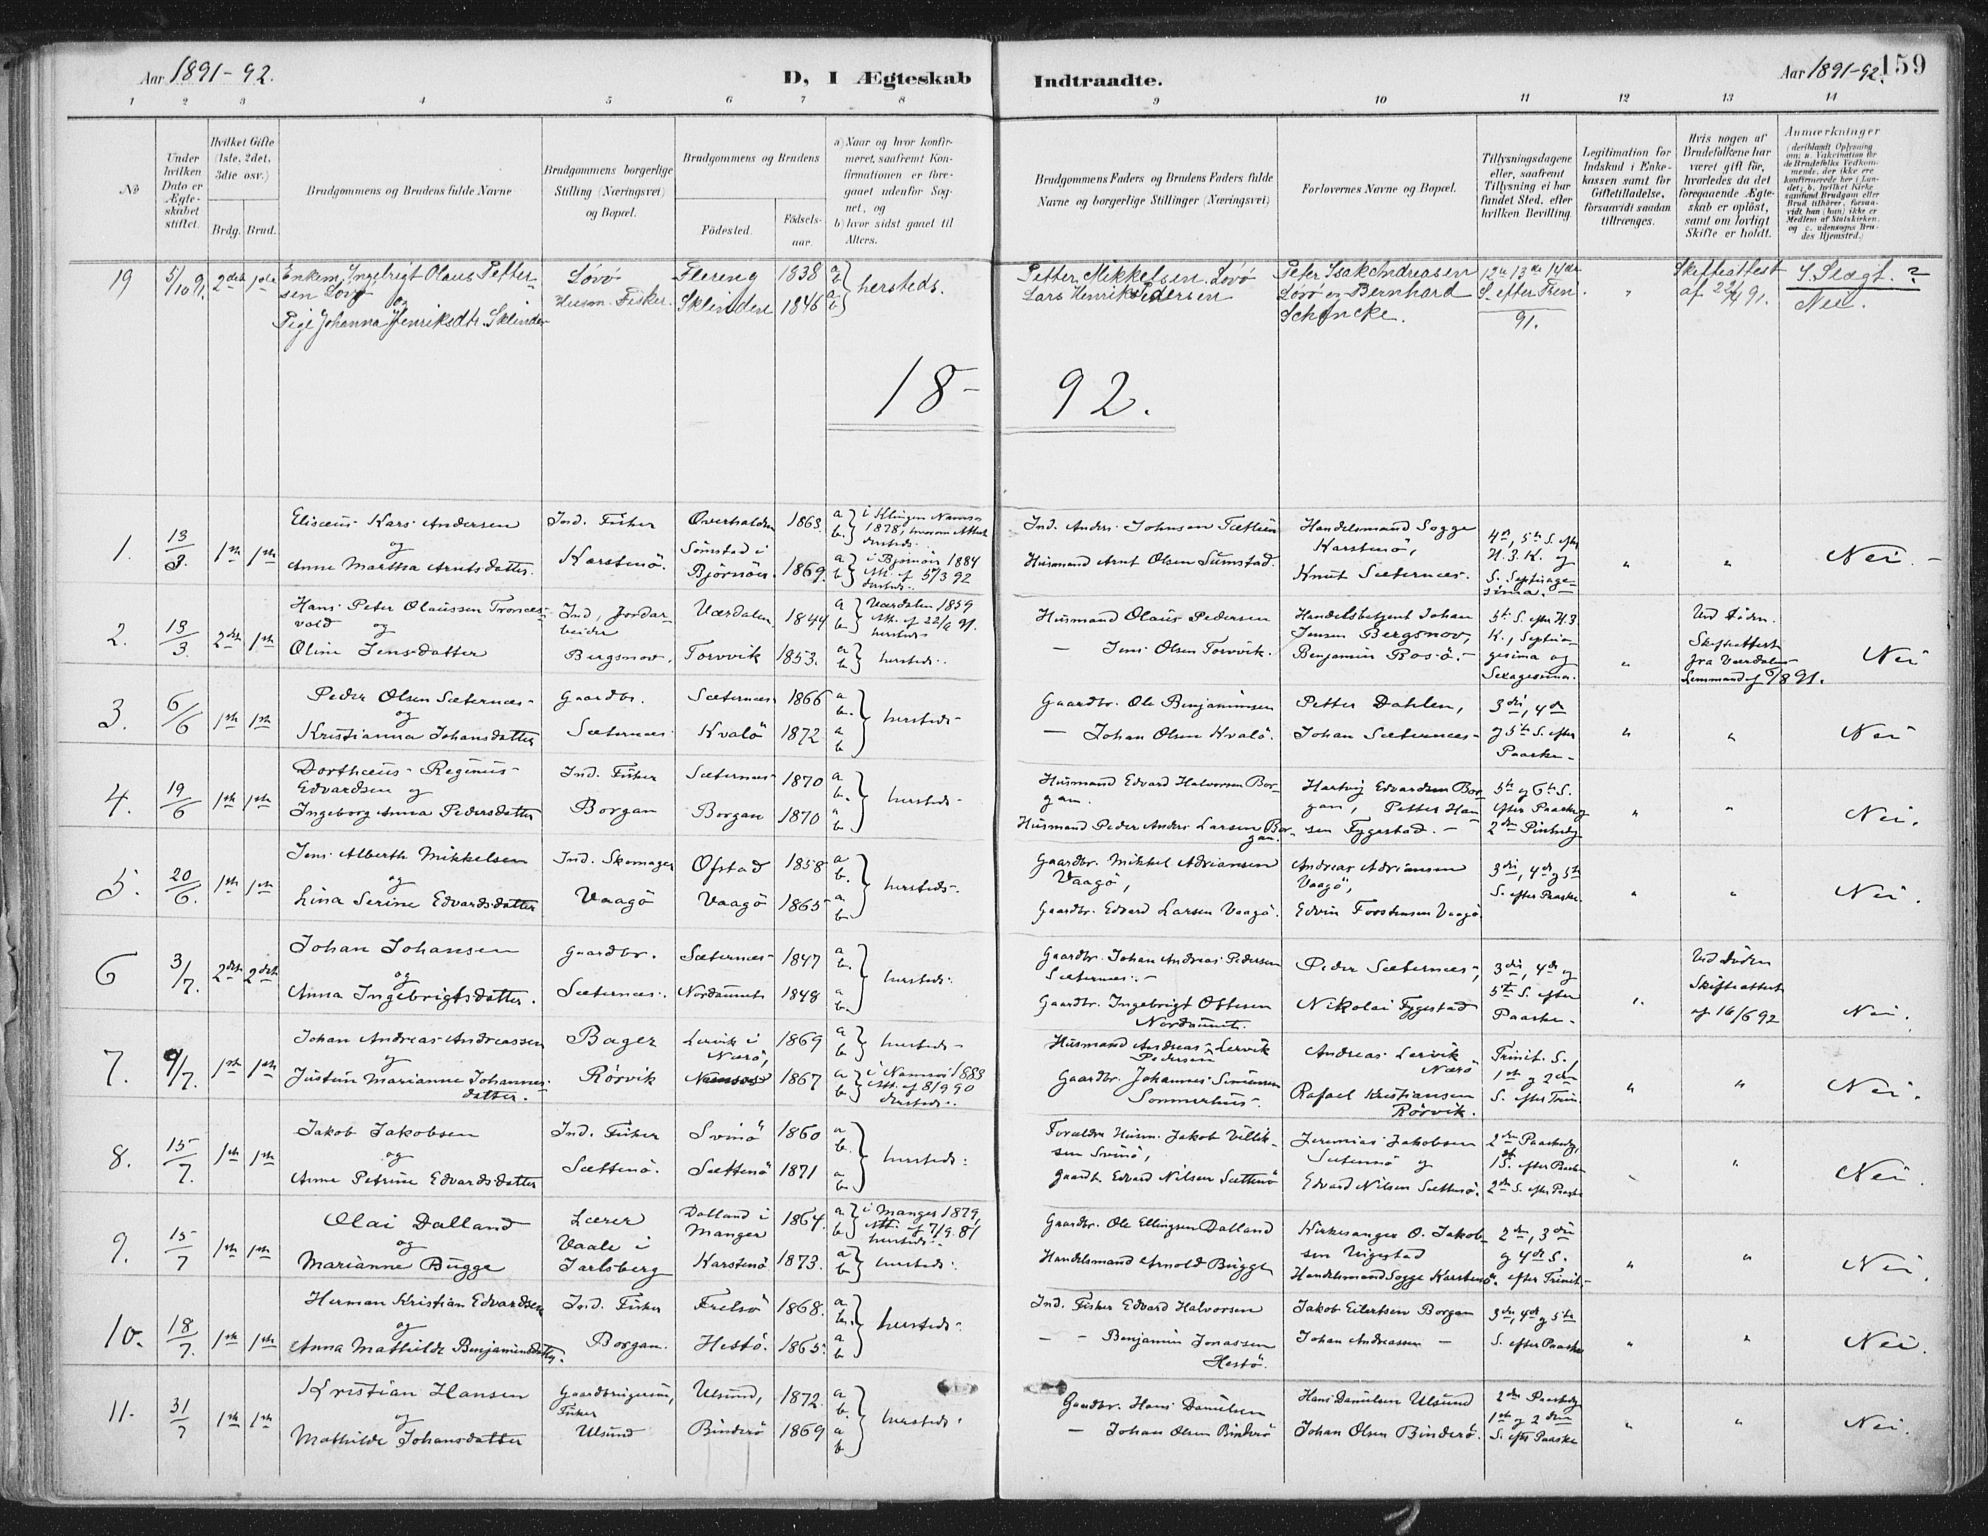 Aar 1891-92.
D, I Ægteskab
Indtraadte.
Aar 1891-92.
159
1 2 3 4 5 6 7 8 9 10 11 12 13 14
No
Under hvilken Dato er Ægteskabet stiftet.
Hvilket Gifte (1ste, 2det, 3die osv.)
Brdg. Brud.
Brudgommens og Brudens fulde Navne
Brudgommens borgerlige Stilling (Næringsvei) og Bopæl.
Brudgommens og Brudens
Fødested.
Fødselsaar.
a) Naar og hvor konfirmeret, saafremt Konfirmationen er foregaaet udenfor Sognet, og
b) hvor sidst gaaet til Alters.
Brudgommens Faders og Brudens Faders fulde Navne og borgerlige Stillinger (Næringsvei)
Forlovernes Navne og Bopæl.
Tillysningsdagene eller, saafremt Tillysning ei har fundet Sted, efter hvilken Bevilling.
Legitimation for Indskud i Enkekassen samt for Giftetilladelse, forsaavidt saadan tiltrænges.
Hvis nogen af Brudefolkene har været gift før, hvorledes da det foregaaende Ægteskab er opløst, samt om lovligt Skifte er holdt.
Anmærkninger
(deriblandt Oplysning om: a. Vakcination for de Brudefolks Vedkommende, der ikke ere konfirmerede her i Landet; b. hvilket Kirkesamfund Brudgom eller Brud tilhører, forsaavidt han (hun) ikke er Medlem af Statskirken, og c. udensogns Brudes Hjemsted.)
19 5/10 91. 2det 1ste Enkem. Ingebrigt Olaus Pettersen Løvø
og
Pige Johanna Henriksdtr. Sklinden
Løvø
Husm. Fisker.
Flereng 1838
Sklinden 1846
a b a b hersteds.
Petter Mikkelsen Løvø
Lars Henrik Pedersen
Peter Isak Andreasen
Løvø og Bernhard
Schöncke.
12te 13de 14de
S. efter Trin.
91.
"
Skifteattest
af 22/4 91.
I Slægt. ?
Nei.
18- 92.
1. 13/3. 1ste 1ste
Elisæus Kars Andersen
og
Anne Martha Arntsdatter.
Ind. Fisker
Karstenö.
Overhalden 1863.
Sömstad i
Björnöir 1869.
a b i Klingen Namsos
1878, hvorom Attest
dersteds.
a b i Bjørnöir 1884
Att. af 5/3 92
dersteds.
Ind. Anders Johnsen
Husmand Arnt Olsen Sumstad.
Handelsmand Sogge
Karstenö,
Knut Sæternæs.
4de, 5te S. efter
H. 3 K. og
S. Septuagesima.
" "
Nei.
2. 13/3. 2det 1ste
Hans Peter Olaussen Tronæsvold
og
Oline Jensdatter
Ind., Jordarbeider
Bergsnov.
Værdalen 1844
Torvvik 1853.
a b Værdalen 1859
Att. af 22/6 91.
hersteds
a b hersteds.
Husmand Olaus Pedersen
— Jens Olsen Torvvik.
Handelsbetjent Johan
Jensen Bergsnov,
Benjamin Rosö.
5te S. efter H. 3
K., Septuagesima og
Sexagesima.
"
Ved Döden.
Skifteattest
fra Værdalens
Lensmand af 7/8 91.
Nei
3. 6/6 1ste 1ste
Peder Olsen Sæternæs
og
Kristianna Johansdatter
Gaardbr.
Sæternæs
Sæternæs 1866
Kvalö 1872
a b a b hersteds
Gaardbr. Ole Benjaminsen
— Johan Olsen Kvalö.
Petter Dahlen,
Johan Sæternæs
3die, 4de
og 5te S. efter
Paaske
" "
Nei
4. 19/6 1ste 1ste
Dorthæus Reginus
Edvardsen og
Ingeborg Anna Pedersdatter
Ind. Fisker
Borgan
Sæternæs 1870
Borgan 1870
a b a b hersteds
Husmand Edvard Halvorsen Borgan.
Husmand Peder Anders Larsen Borgan.
Hartvig Edvardsen Borgan, Petter Hansen Fygestad.
5te og 6te S.
efter Paaske og
2den Pintsedag
" "
Nei.
5. 20/6. 1ste 1ste
Jens Alberth Mikkelsen
og
Lina Serine Edvardsdatter
Ind. Skomager
Vaagö
Ofstad 1858
Vaagö 1865
a b a b hersteds.
Gaardbr. Mikkel Adriansen
Vaagö,
Gaardbr. Edvard Larsen Vaagö.
Andreas Adriansen
Vaagö,
Edvin Forthunsen Vaagö
3die, 4de og 5te
S. efter Paaske.
" "
Nei.
6 3/7. 2det 2det
Johan Johansen
og
Anna Ingebrigtsdatter.
Gaardbr.
Sæternæs.
Sæternæs 1847
Nordaunet 1848
a b a b hersteds.
Gaardbr. Johan Andreas Pedersen
Sæternæs.
Gaardbr. Ingebrigt Ottesen
Nordaunet.
Peder Sæternæs,
Nikolai Fygestad
3die, 4de og
5te S. efter
Paaske
"
Ved Döden
Skifteattest
af 16/6 92
Nei.
7. 9/7. 1ste 1ste
Johan Andreas Andreassen
og
Justein Marianne Johannesdatter.
Bager
Rörvik
Lervik i
Nærö, 1869
Namsos 1867
a b hersteds
a b i Namsos 1883
Att. af 8/9 90
dersteds.
Husmand Andreas Lervik
Pedersen
Gaardbr. Johannes Simensen
Sommerhus.
Andreas Lervik
Nærö
Rafael Kristiansen
Rörvik.
Trinit. S.,
1ste og 2den
S. efter Trin.
" "
Nei.
8. 15/7. 1ste 1ste
Jakob Jakobsen
og
Anne Petrine Edvardsdatter
Ind. Fisker
Sættenö.
Svinö 1860
Sættenö 1871
a b a b hersteds.
Forældre Husm. Jakob Villiksen Svinö,
Gaardbr. Edvard Nilsen Sættenö
Jeremias Jakobsen
Sætenö og
Edvard Nilsen Sættenö.
2den Paaskedag,
1ste S. efter Paaske
2den S. efter Paaske
"
Nei.
9. 15/7 1ste 1ste
Olai Dalland
og
Marianne Bugge
Lærer
Vaale i
Jarlsberg
Dalland i
Manger 1864.
Karstenö 1873.
a b i Manger 1879,
Att. af 7/9. 81
hersteds.
a b hersteds.
Gaardbr. Ole Ellingsen Dalland
Handelsmand Arnold Bugge
Kirkesanger O. Jakobsen Vigestad
Handelsmand Sogge Karstenö.
2den, 3die
og 4de S.
efter Trinit.
" "
Nei.
10. 18/7. 1ste 1ste
Herman Kristian Edvardsen
og
Anna Mathilde Benjaminsdatter.
Ind. Fisker
Borgan.
Frelsö 1868.
Hestö. 1865.
a b a b hersteds.
Ind. Fisker Edvard Halvorsen
— — Benjamin Jonassen
Hestö.
Jakob Eilertsen Borgan
Johan Andreassen —
3die, 4de og 5te
S. efter Paaske
" "
Nei.
11. 31/7 1ste 1ste
Kristian Hansen
og
Mathilde Johansdatter
Gaardbrugersön,
Fisker
Ulsund
Ulsund, 1872.
Binderö 1869
a b a b hersteds.
Gaardbr. Hans Danielsen
— Johan Olsen Binderö
Hans Danielsen Ulsund
Johan Olsen Binderö.
2den Paaskedag
1ste og 2den
S. efter Paaske
" "
Nei.